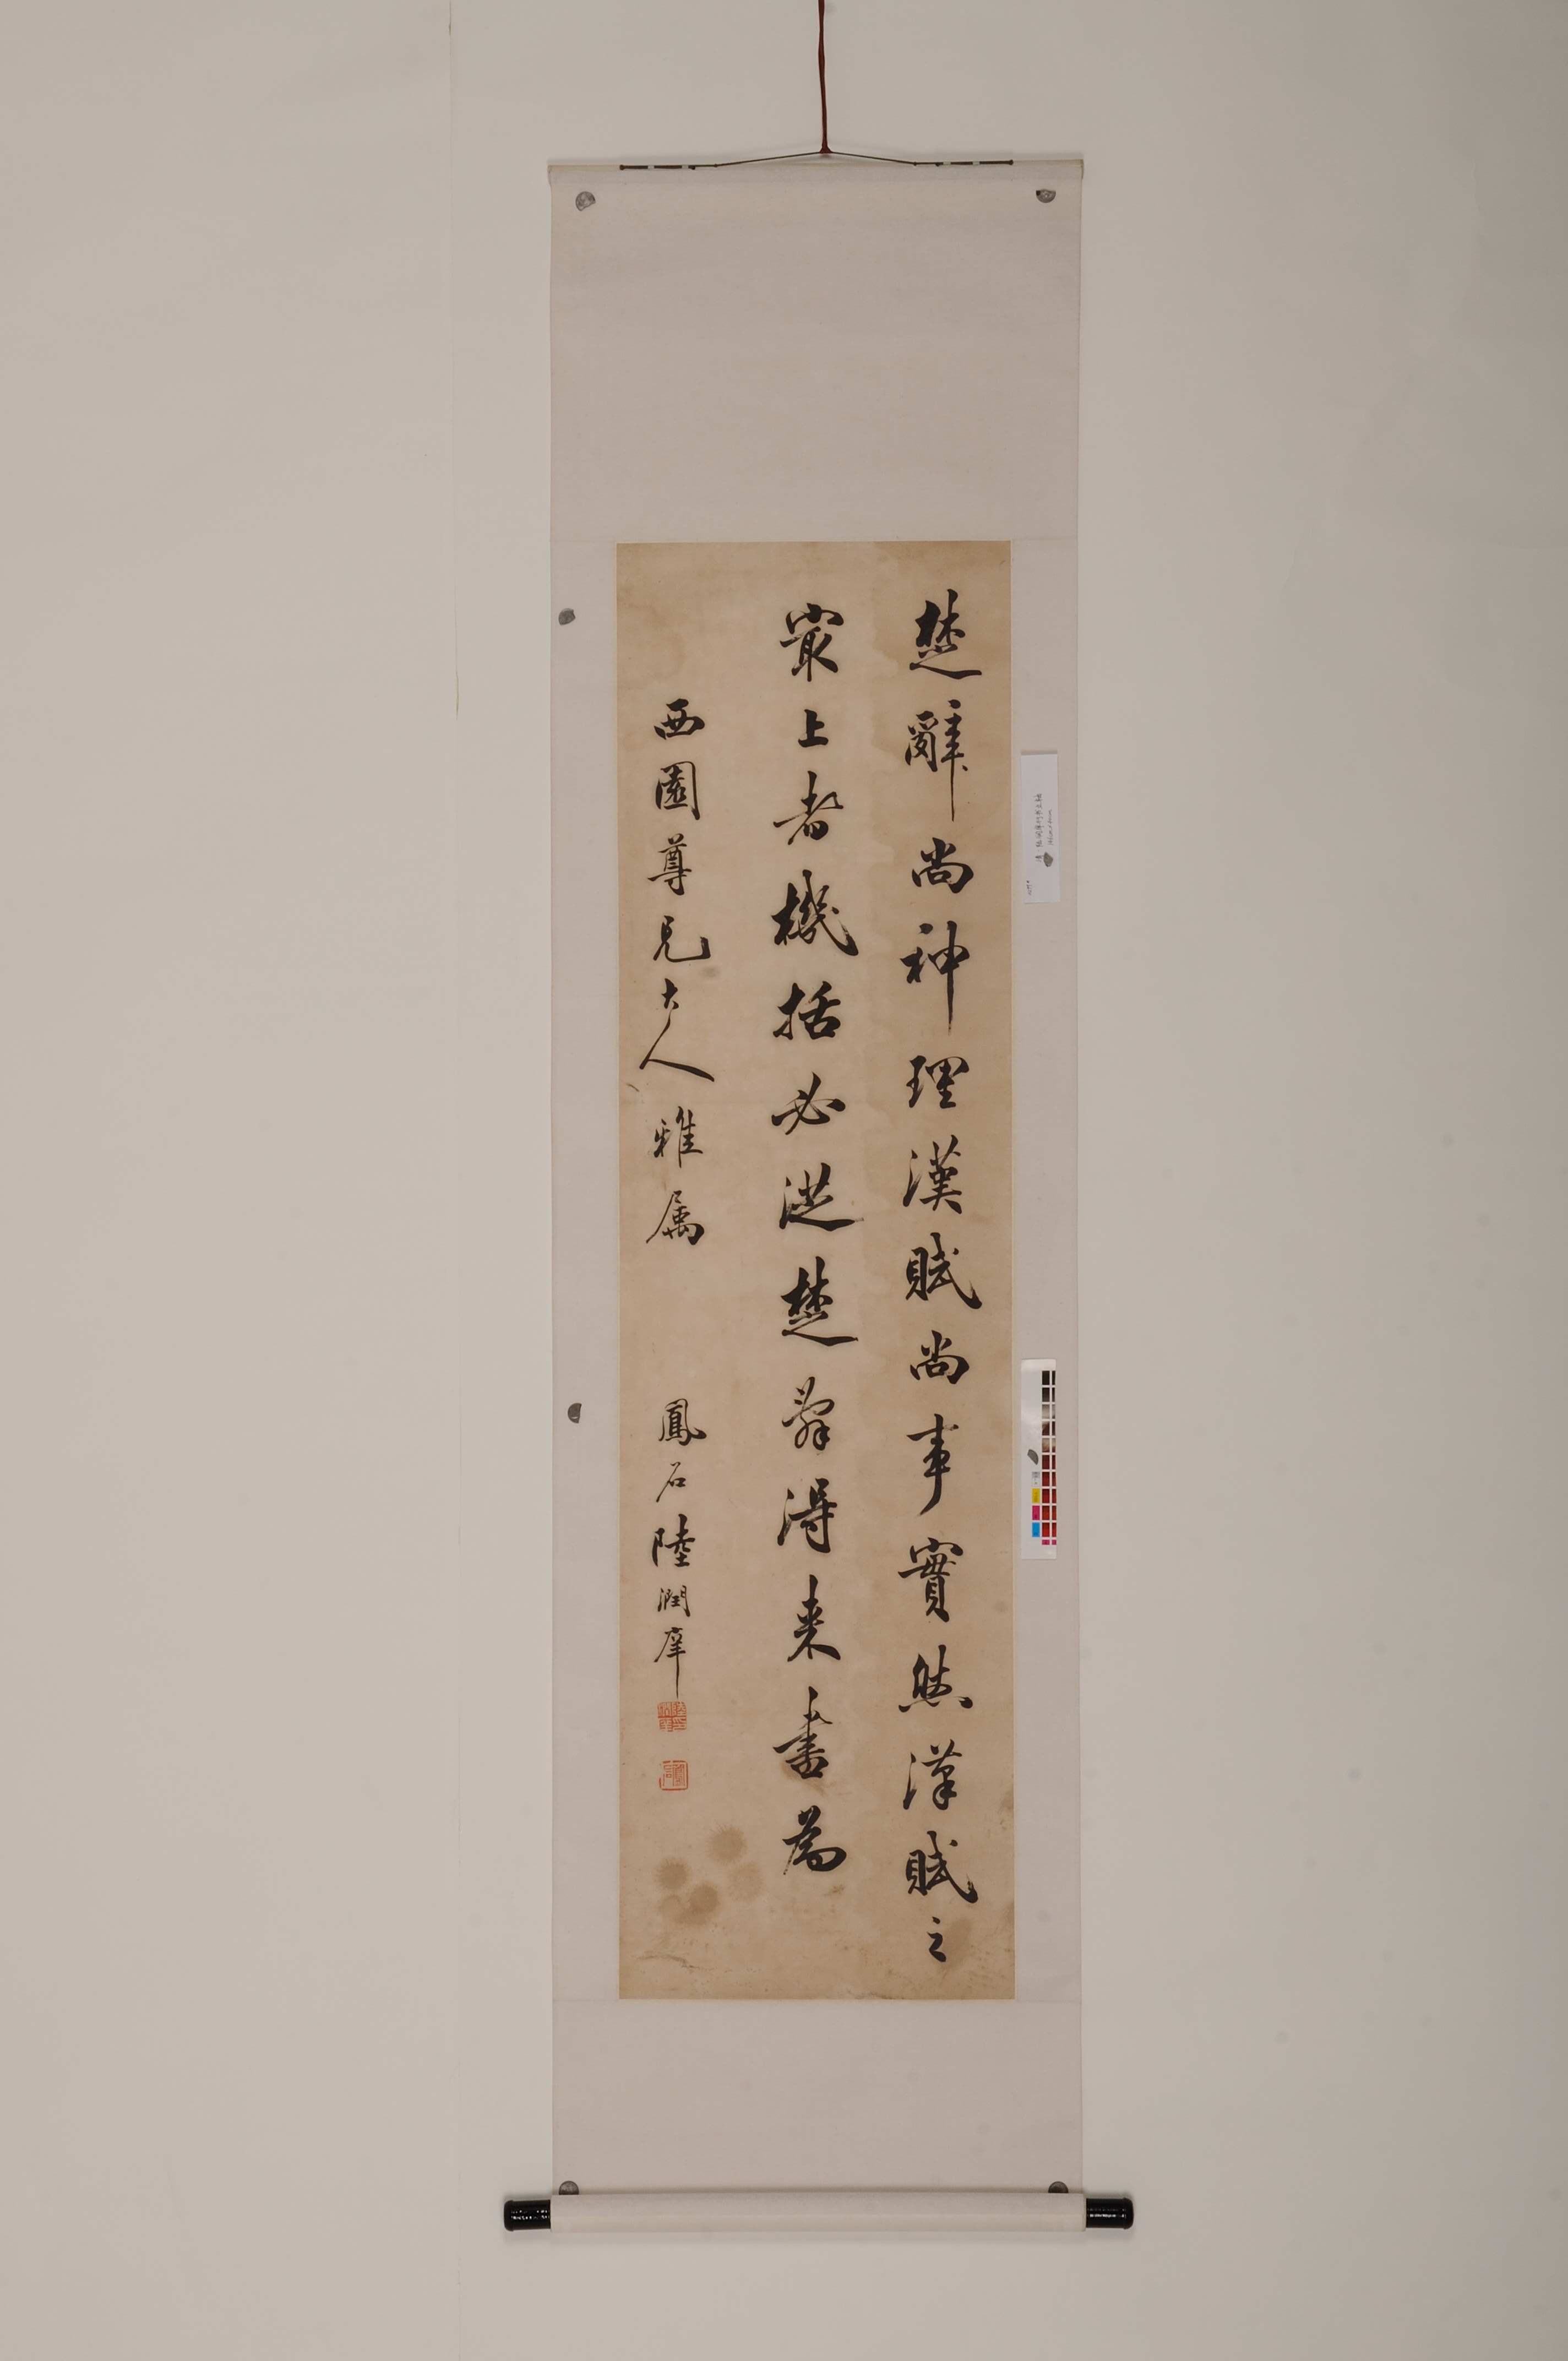 楚辭尚神理漢賦尚事實然漢賦之
㝡上者機括必從楚辭得来書為
西園尊兄大人雅属
鳳石陸潤庠